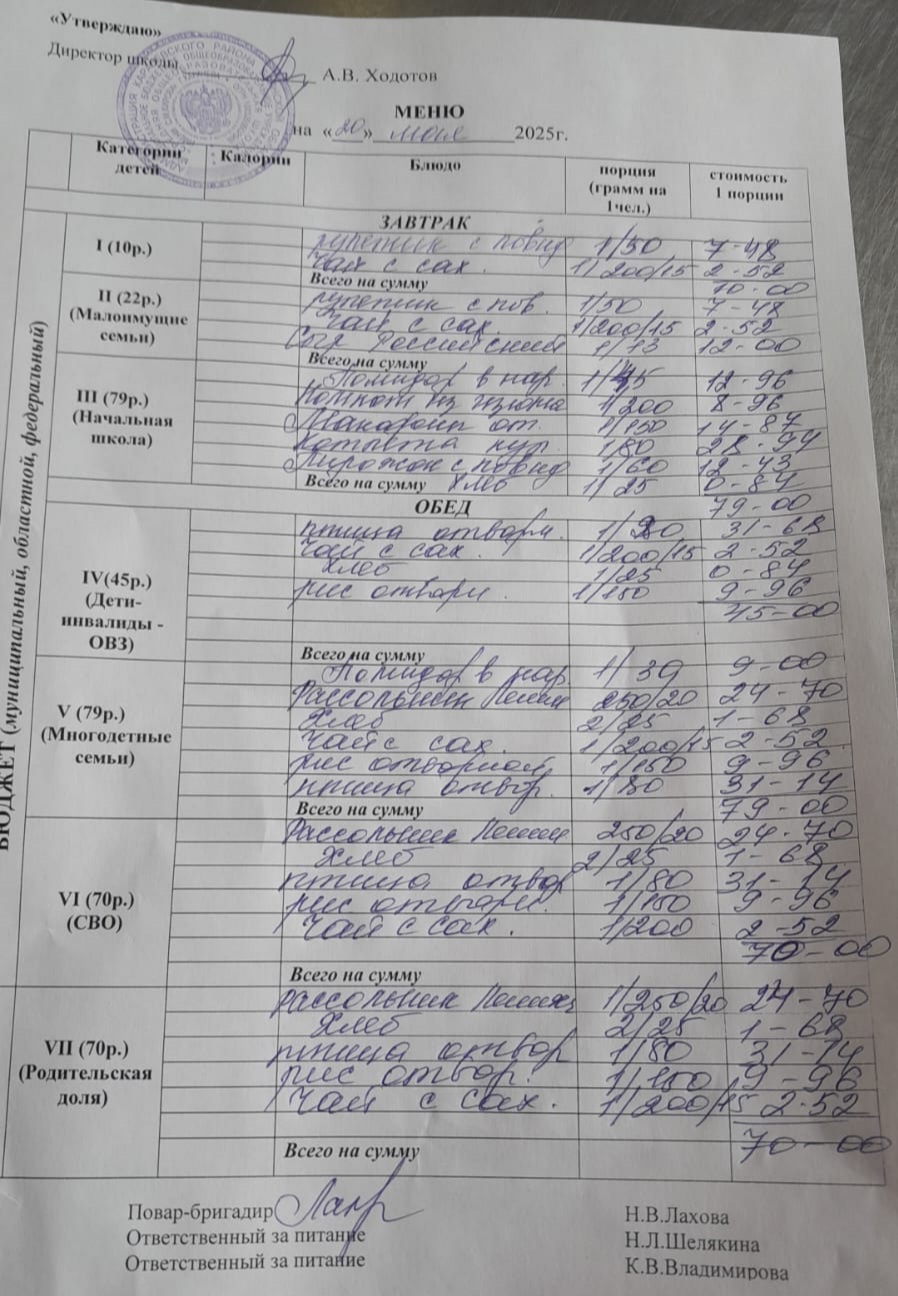 «Утверждаю»
Директор школы А.В. Ходотов
МЕНЮ
на «20» мая 2025г.
Категории детей Калории Блюдо порция (грамм на 1чел.) стоимость 1 порции
БЮДЖЕТ (муниципальный, областной, федеральный)
ЗАВТРАК
I (10р.)
с повид 1/50 7-48
Чай с сах. 1/200/15 2-52
Всего на сумму 10-00
II (22р.) (Малоимущие семьи)
с пов. 1/50 7-48
Чай с сах. 1/200/15 2-52
Сыр Российский 1/13 12-00
Всего на сумму
III (79р.) (Начальная школа)
Помидор в нар. 1/45 12-96
Компот из изюма 1/200 8-96
Макароны от. 1/150 14-87
Котлета кур. 1/80 28-94
Пирожок с повид 1/60 12-43
Всего на сумму Хлеб 1/25 0-84
79-00
ОБЕД
IV(45р.) (Дети-инвалиды - ОВЗ)
птица отварн. 1/80 31-68
Чай с сах. 1/200/15 2-52
Хлеб 1/25 0-84
рис отварн. 1/150 9-96
45-00
Всего на сумму
V (79р.) (Многодетные семьи)
Помидор в нар 1/39 9-00
Рассольник Ленин 250/20 24-70
Хлеб 2/25 1-68
Чай с сах. 1/200/15 2-52
рис отварной 1/150 9-96
птица отвар. 1/80 31-14
Всего на сумму 79-00
VI (70р.) (СВО)
Рассольник Ленин 250/20 24-70
Хлеб 2/25 1-68
птица отвар 1/80 31-14
рис отварн. 1/150 9-96
Чай с сах. 1/200 2-52
70-00
Всего на сумму
VII (70р.) (Родительская доля)
рассольник Ленинг 1/250/20 24-70
Хлеб 2/25 1-68
птица отвар 1/80 31-14
рис отвар. 1/150 9-96
Чай с сах. 1/200/15 2-52
Всего на сумму 70-00
Повар-бригадир Н.В.Лахова
Ответственный за питание Н.Л.Шелякина
Ответственный за питание К.В.Владимирова